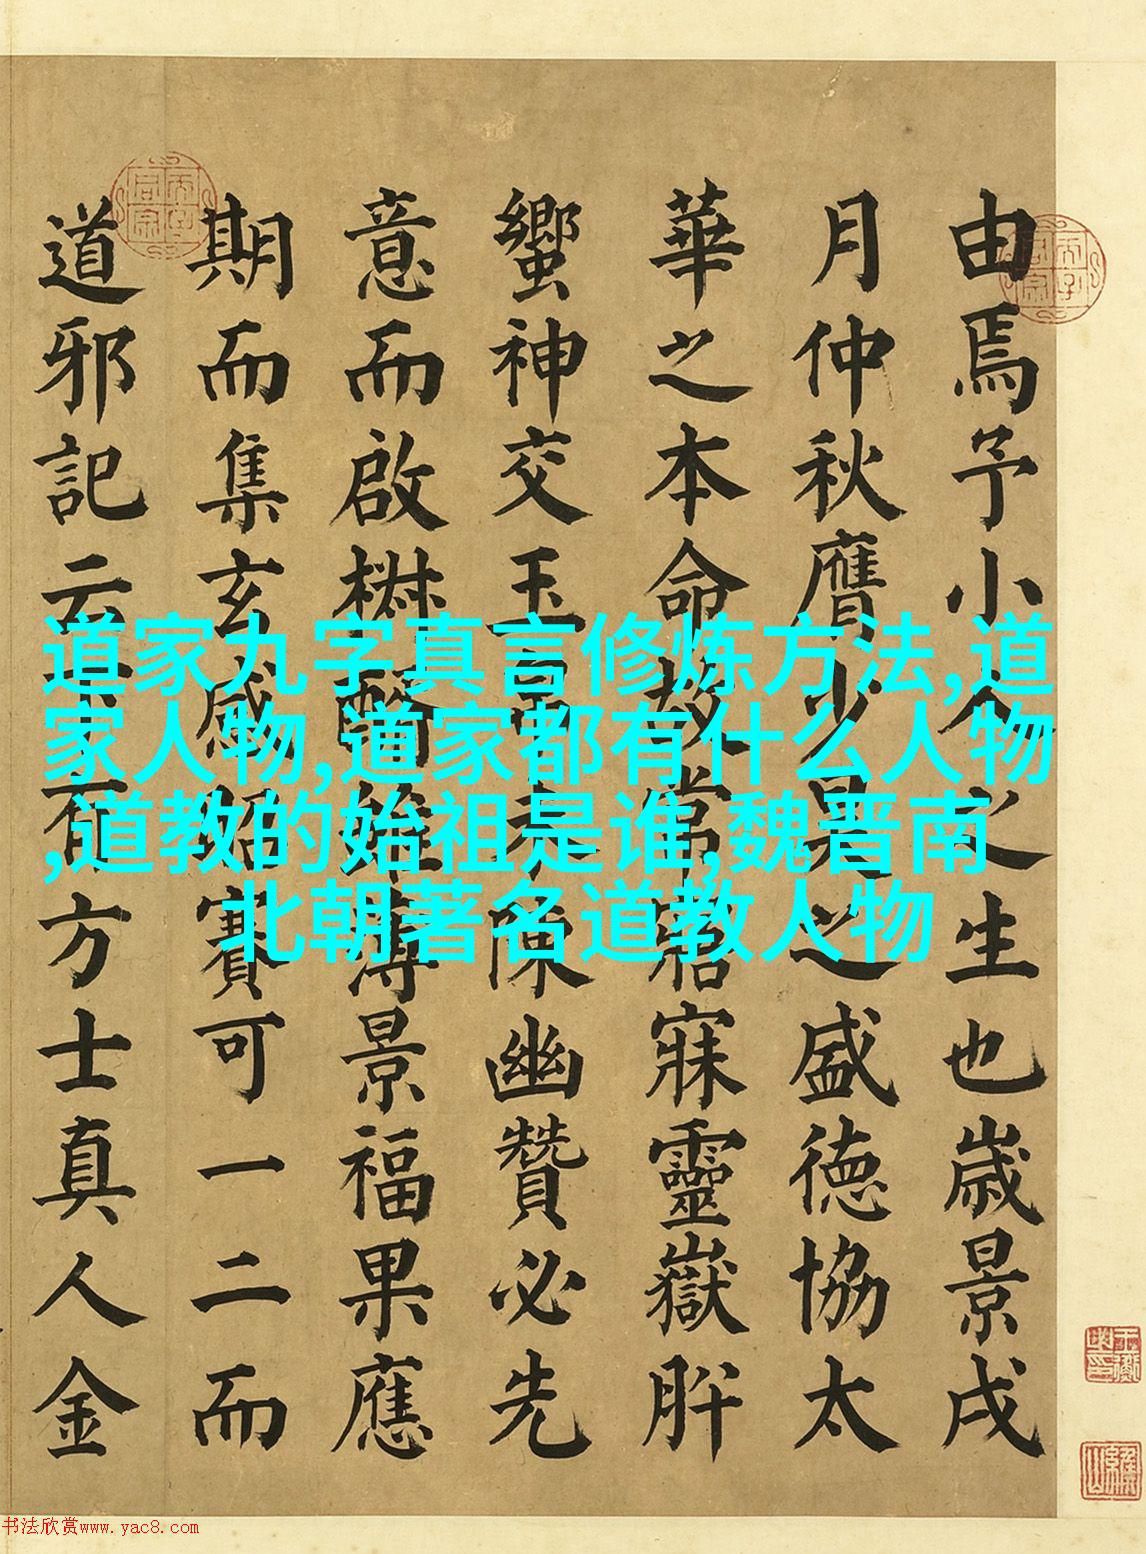 由焉予小之生也歲景戌
月仲秋膺少昊之盛德協太
華之本命故常寤寐靈嶽肸
蠁神交玉陳幽贊必先
意而啟椒醑雖薄景福果應
期而集玄感昭賽可一二而
道邪記云方士真人金
道家九字真言修炼方法,道
家人物,道家都有什么人物
,道教的始祖是谁,魏晋南
北朝著名道教人物
书法欣赏www.yac8.com